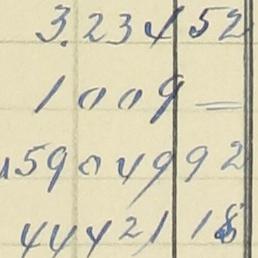 3.234 52
1009 =
159049 92
44421 18